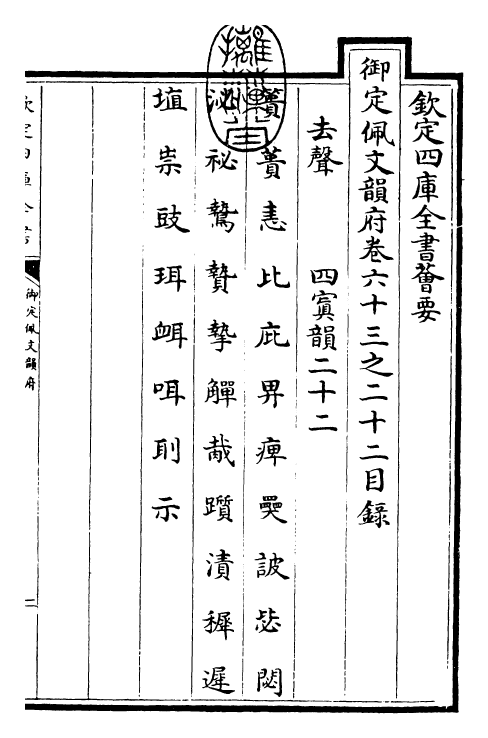 欽定四庫全書薈要
御定佩文韻府卷六十三之二十二目錄
去聲 四寘韻二十二
蕢 恚 比 庇 畀 痺 㚿 詖 毖 閟
泌 祕 鷙 贄 摯 觶 胾 躓 漬 穉 遲
埴 祟 豉 珥 衈 咡 刵 示
欽定四庫全書
御定佩文韻府